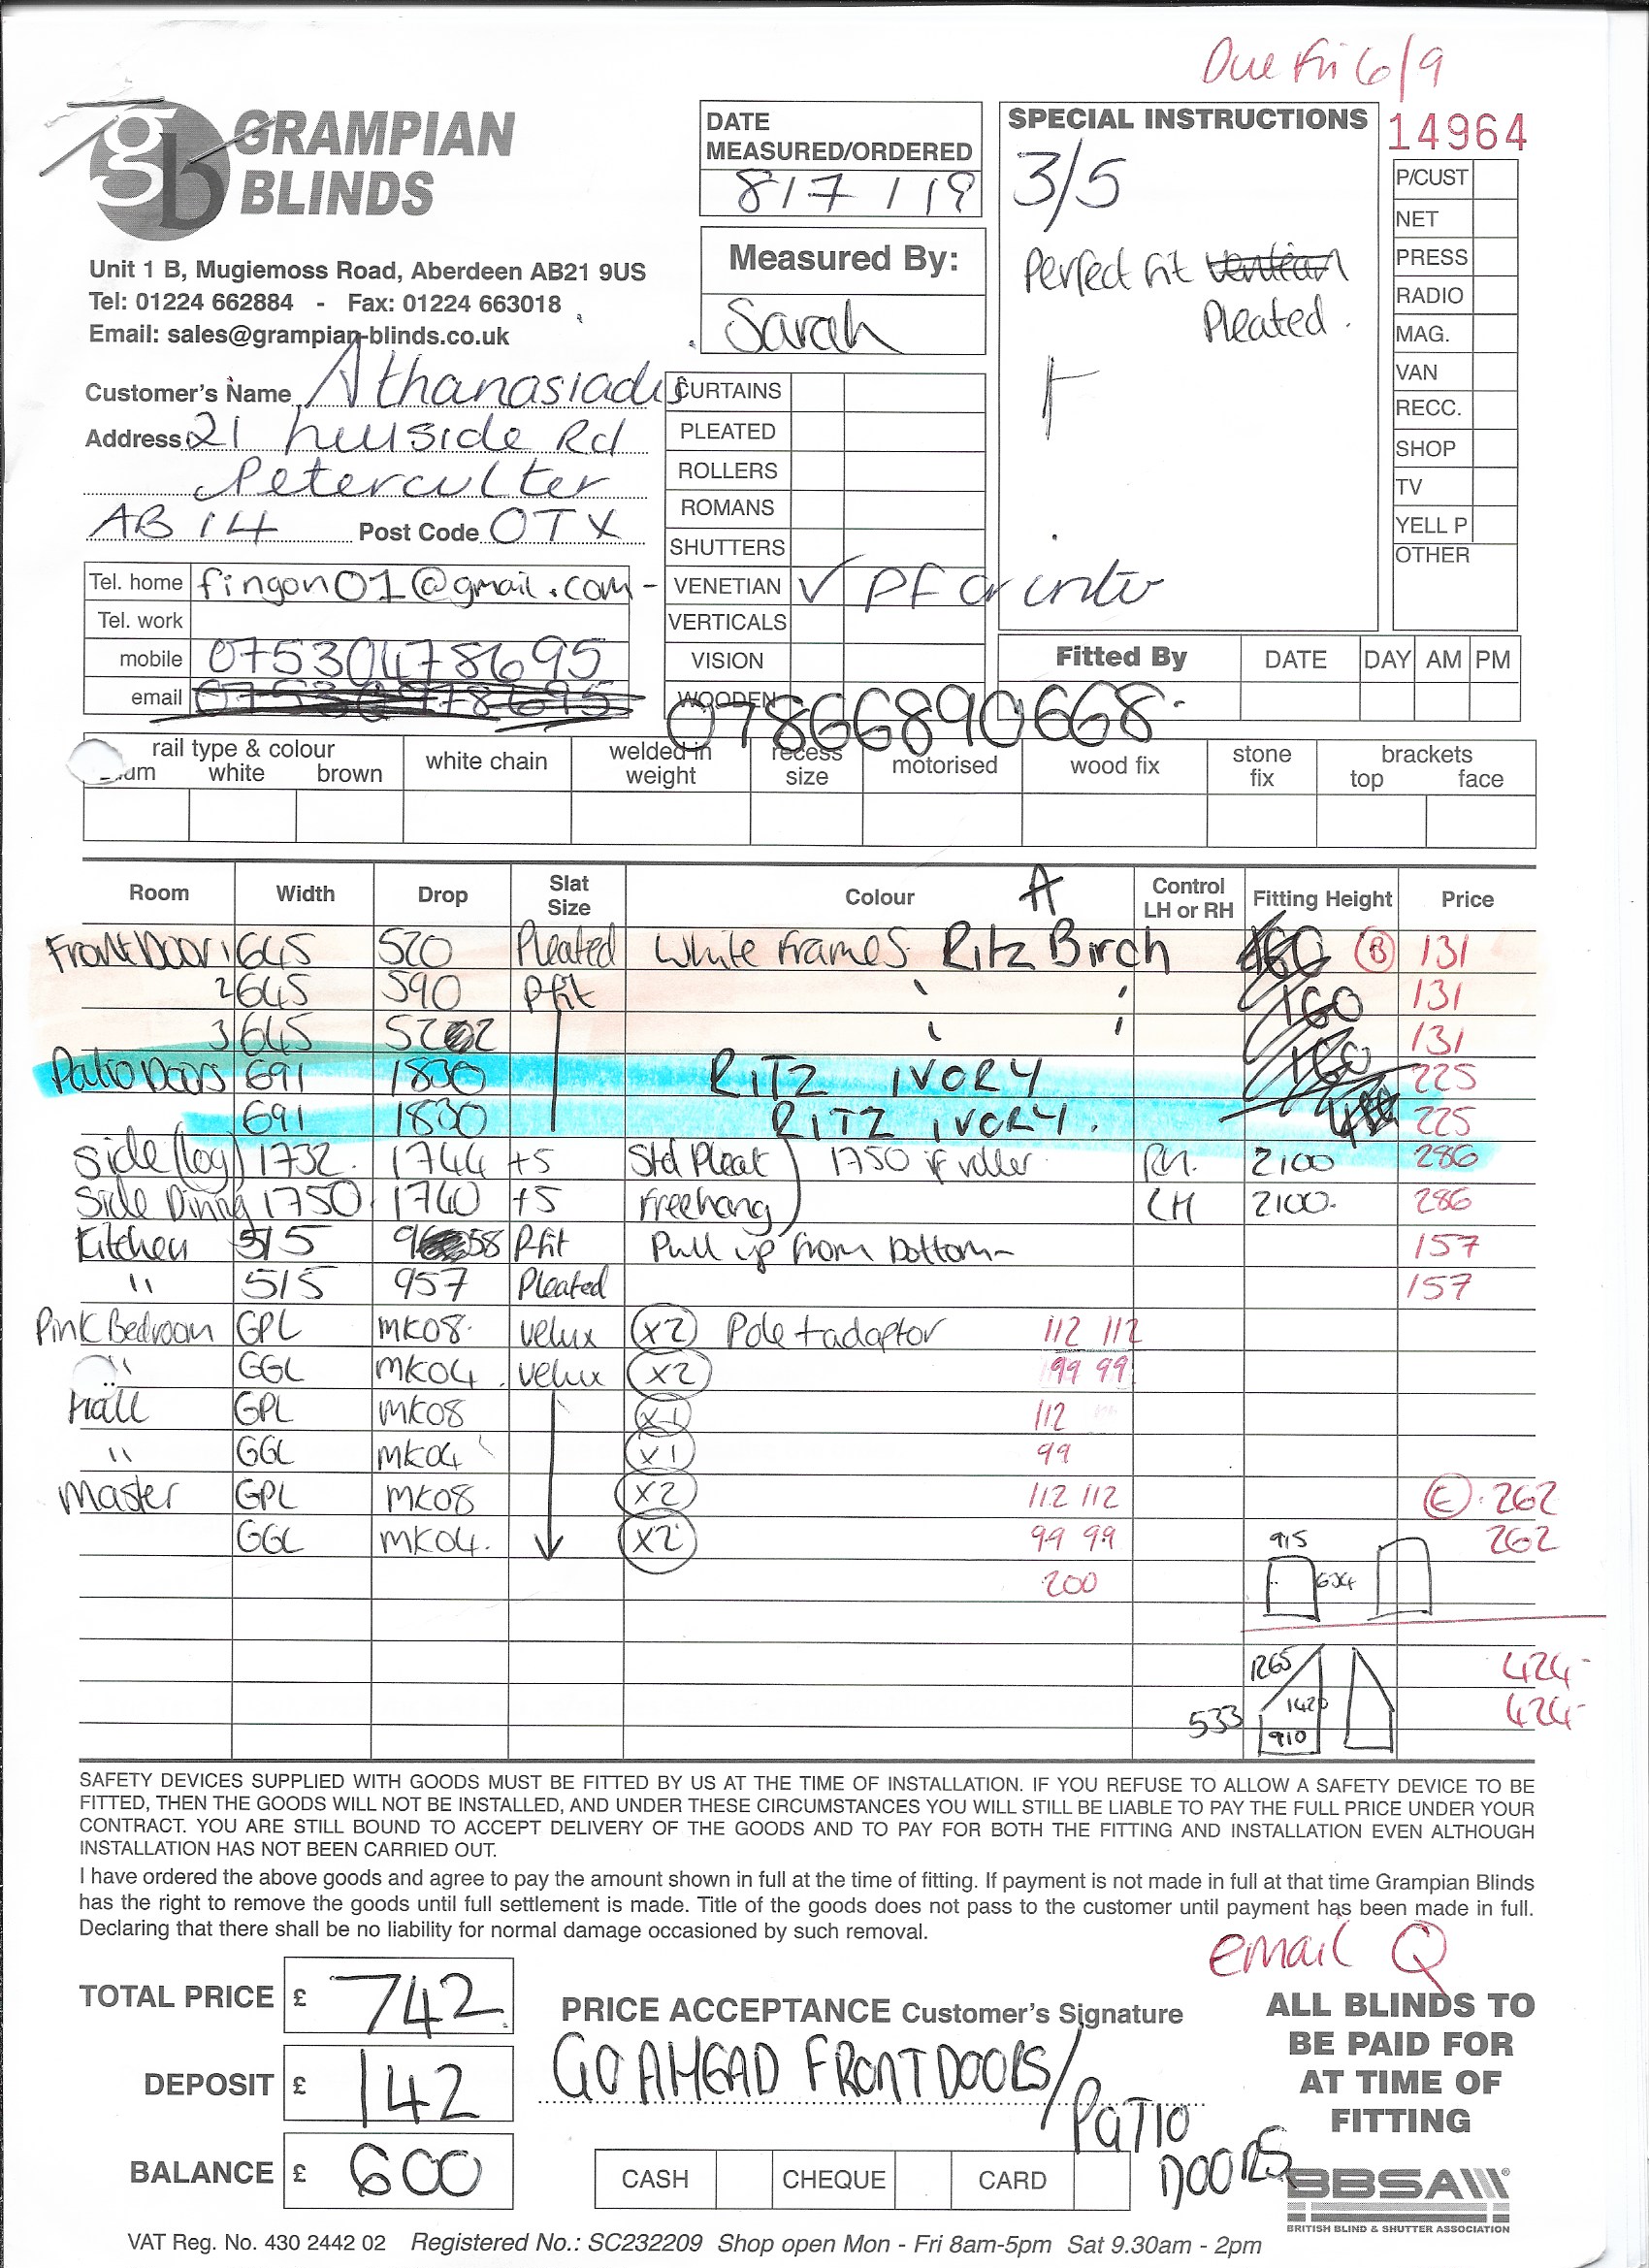 Due Fri 6/9
gb GRAMPIAN
BLINDS
Unit 1 B, Mugiemoss Road, Aberdeen AB21 9US
Tel: 01224 662884 - Fax: 01224 663018
Email: sales@grampian-blinds.co.uk
DATE
MEASURED/ORDERED
8/7/19
Measured By:
Sarah
SPECIAL INSTRUCTIONS
3/5
Perfect Fit venetian
Pleated.
14964
P/CUST
NET
PRESS
RADIO
MAG.
VAN
RECC.
SHOP
TV
YELL P
OTHER
Customer's Name Athanasiadis
Address 21 hillside Rd
Peterculter
AB 14 Post Code 0TX
Tel. home fingon01@gmail.com
Tel. work
mobile 07530478695
email 07530478695
CURTAINS
PLEATED
ROLLERS
ROMANS
SHUTTERS
VENETIAN ✓ PF or
VERTICALS
VISION
WOODEN
07866890668
Fitted By DATE DAY AM PM
rail type & colour
white brown
white chain
welded in
weight
recess
size
motorised
wood fix
stone
fix
brackets
top face
Room Width Drop Slat Size Colour A Control LH or RH Fitting Height Price
Front Door 1 645 520 Pleated White Frames. Ritz Birch 160 B 131
2 645 590 P-fit 160 131
3 645 5202 160 131
Patio Doors 691 1830 RITZ IVORY 225
691 1830 RITZ IVORY. 225
Side (log) 1732. 1744 +5 Std Pleat 1750 if roller RH. 2100 286
Side Dining 1750. 1740 +5 Freehang LH 2100. 286
Kitchen 515 958 P-fit Pull up from bottom 157
" 515 957 Pleated 157
Pink Bedroom GPL MK08. velux (x2) Pole + adaptor 112 112
" GGL MK04. velux (x2) 99 99
Hall GPL MK08 (x1) 112
" GGL MK04 (x1) 99
Master GPL MK08 (x2) 112 112 E. 262
GGL MK04. (x2) 99 99 262
200
915
634
1265 424-
1420 424-
533 910
SAFETY DEVICES SUPPLIED WITH GOODS MUST BE FITTED BY US AT THE TIME OF INSTALLATION. IF YOU REFUSE TO ALLOW A SAFETY DEVICE TO BE
FITTED, THEN THE GOODS WILL NOT BE INSTALLED, AND UNDER THESE CIRCUMSTANCES YOU WILL STILL BE LIABLE TO PAY THE FULL PRICE UNDER YOUR
CONTRACT. YOU ARE STILL BOUND TO ACCEPT DELIVERY OF THE GOODS AND TO PAY FOR BOTH THE FITTING AND INSTALLATION EVEN ALTHOUGH
INSTALLATION HAS NOT BEEN CARRIED OUT.
I have ordered the above goods and agree to pay the amount shown in full at the time of fitting. If payment is not made in full at that time Grampian Blinds
has the right to remove the goods until full settlement is made. Title of the goods does not pass to the customer until payment has been made in full.
Declaring that there shall be no liability for normal damage occasioned by such removal.
email Q
TOTAL PRICE £ 742
DEPOSIT £ 142
BALANCE £ 600
PRICE ACCEPTANCE Customer's Signature
GO AHEAD FRONT DOORS/
PATIO
DOORS
CASH CHEQUE CARD
ALL BLINDS TO
BE PAID FOR
AT TIME OF
FITTING
BBSA
BRITISH BLIND & SHUTTER ASSOCIATION
VAT Reg. No. 430 2442 02 Registered No.: SC232209 Shop open Mon - Fri 8am-5pm Sat 9.30am - 2pm